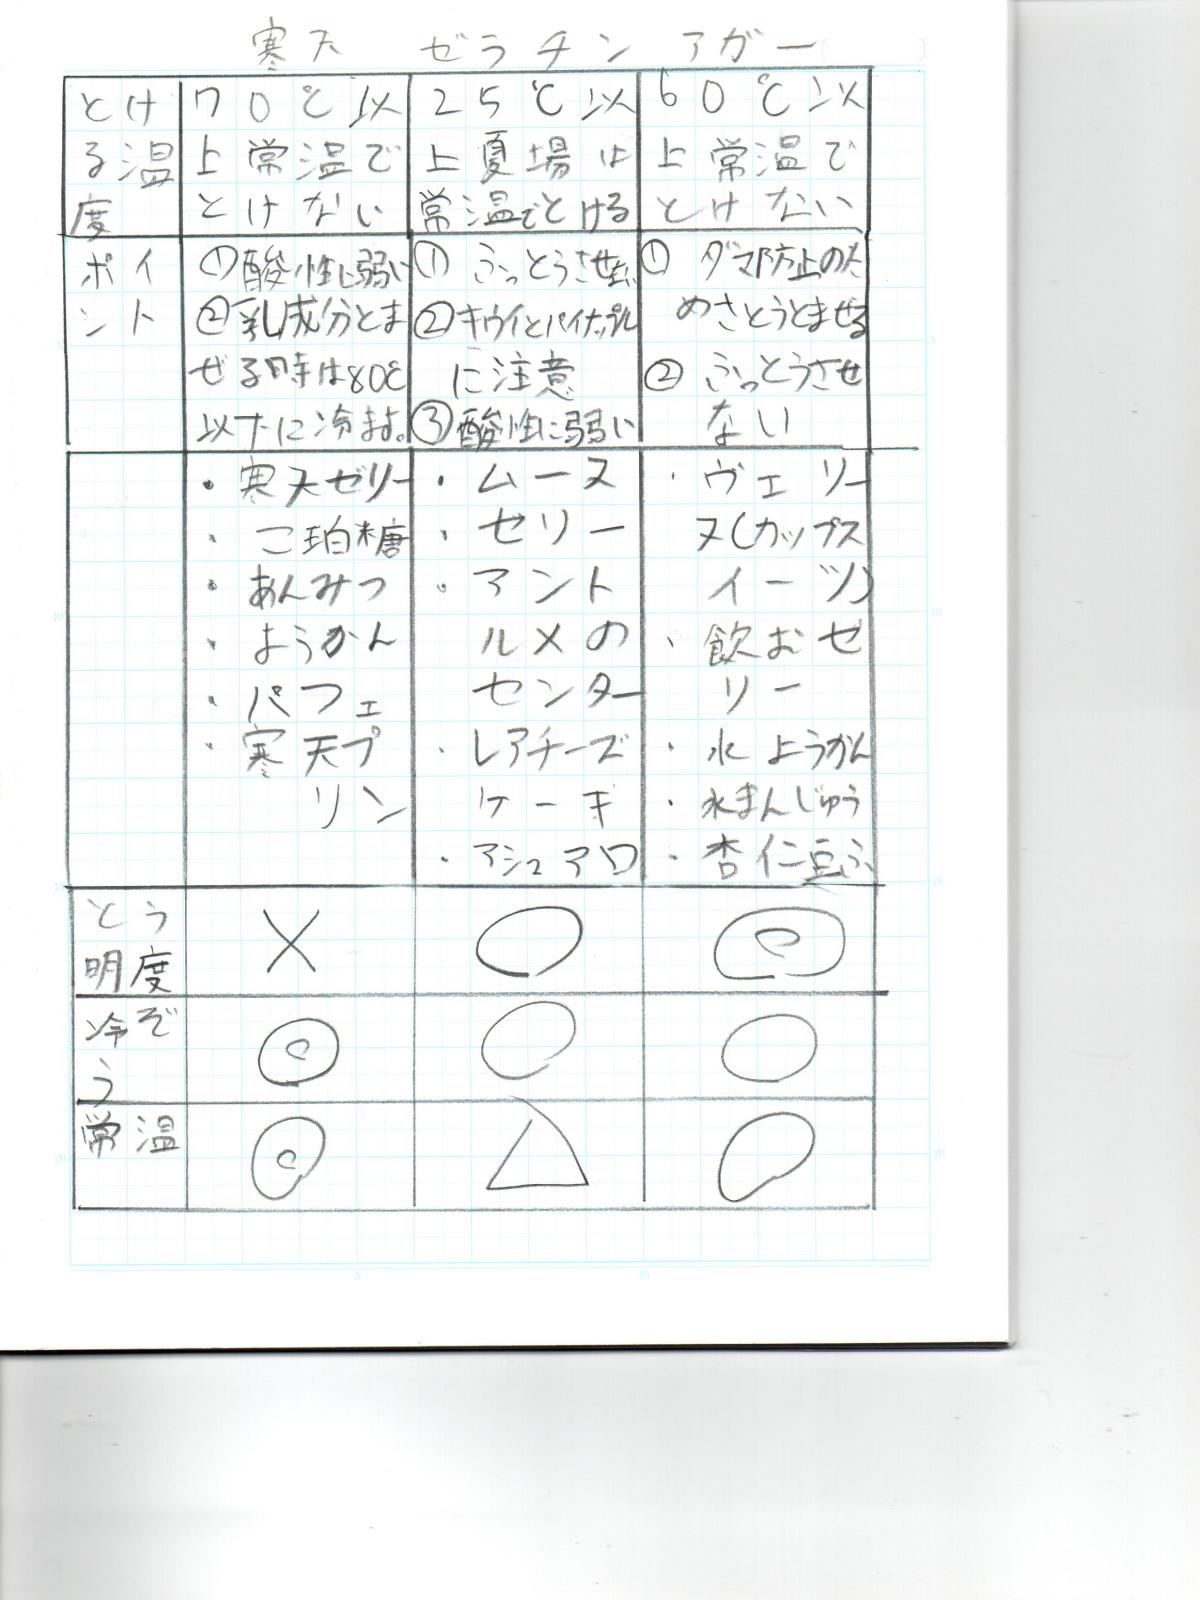 寒天 ゼラチン アガー
とけ
る温
度
70℃以
上常温で
とけない
25℃以
上夏場は
常温でとける
60℃以
上常温で
とけない
ポイ
ント
①酸性に弱い
②乳成分とま
ぜる時は80℃
以下に冷ます。
①ふっとうさせない
②キウイとパイナップル
に注意
③酸性に弱い
①ダマ防止のた
めさとうとまぜる
②ふっとうさせ
ない
・寒天ゼリー
・こ珀糖
・あんみつ
・ようかん
・パフェ
・寒天プ
リン
・ムース
・ゼリー
・アント
ルメの
センター
・レアチーズ
ケーキ
・マシュマロ
・ヴェリー
ヌ(カップス
イーツ)
・飲むゼ
リー
・水ようかん
・水まんじゅう
・杏仁豆ふ
とう
明度
× ○ ◎
冷ぞ
う
◎ ○ ○
常温
◎ △ ○
5
10
15
20
5
10
15
20
5 10